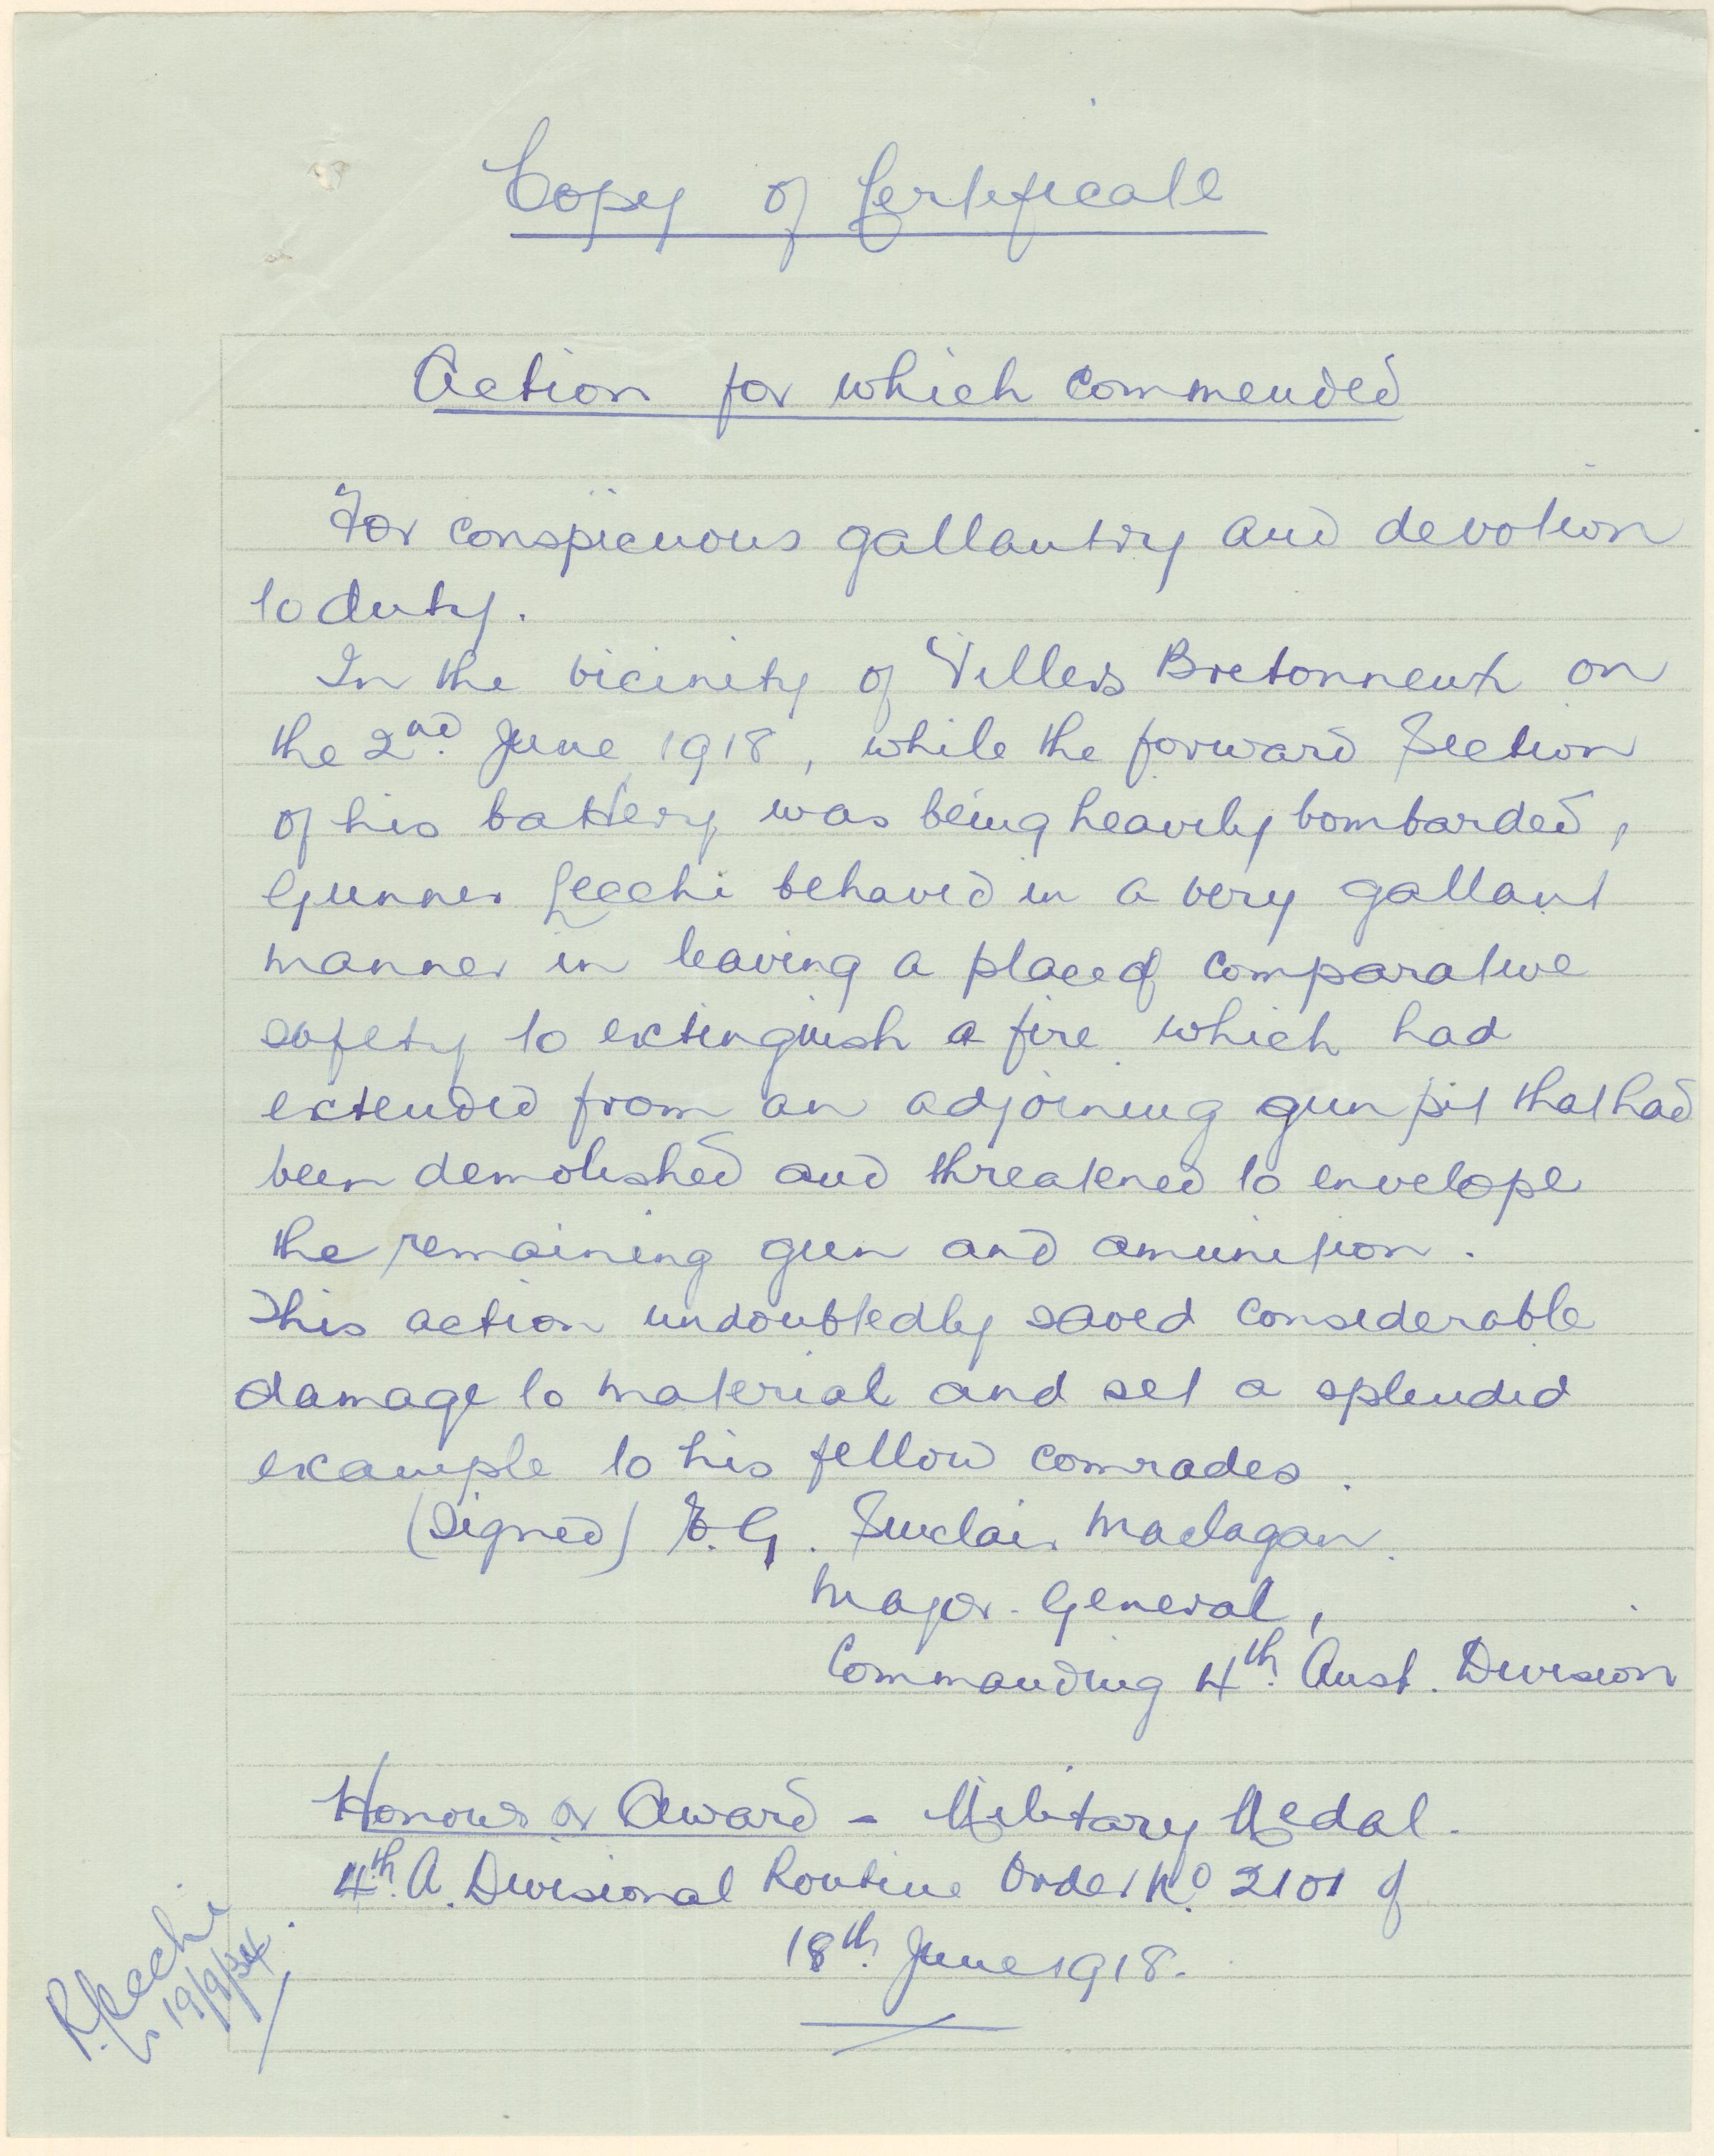 Copy of Certificate
Action for which commended
For conspicuous gallantry and devotion
to duty.
In the vicinity of Villers Bretonneux on
the 2nd. June 1918, while the forward Section
of his battery was being heavily bombarded,
Gunner Lecchi behaved in a very gallant
manner in leaving a place of comparative
safety to extinguish a fire which had
extended from an adjoining gun pit that had
been demolished and threatened to envelope
the remaining gun and amunition.
This action undoubtedly saved considerable
damage to material and set a splendid
example to his fellow comrades.
(Signed) E.G. Sinclair Maclagan.
Major. General,
Commanding 4th. Aust. Division
Honour or Award - Military Medal.
4th. A. Divisional Routine Order No. 2101 of
18th. June 1918.
R. Lecchi
19/9/34.